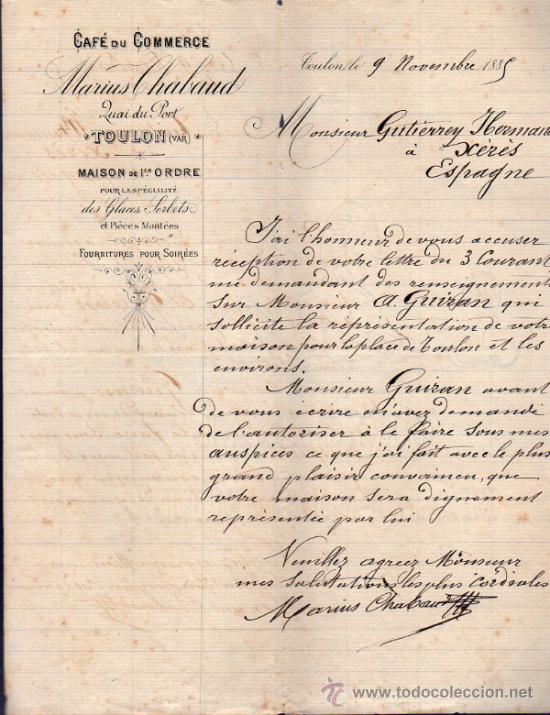 CAFÉ DU COMMERCE
Marius Chabaud
Quai du Port
TOULON (VAR)
MAISON DE 1ER ORDRE
POUR LA SPÉCIALITÉ
des Glaces, Sorbets
et Pièces Montées
FOURNITURES POUR SOIRÉES
Toulon, le 9 Novembre 1885
Monsieur Gutierrey Herman
à Xérès
Espagne
J'ai l'honneur de vous accuser
réception de votre lettre du 3 Courant
me demandant des renseignements
sur Monsieur A. Guiran qui
sollicite la représentation de votre
maison pour la place de Toulon et les
environs.
Monsieur Guiran avant
de vous écrire m'avez demandé
de l'autoriser à le faire sous mes
auspices ce que j'ai fait avec le plus
grand plaisir convaincu, que
votre maison sera dignement
representée par lui
Veuillez agreez Monsieur
mes salutations les plus cordiales
Marius Chabaud
todocoleccion
© www.todocoleccion.net